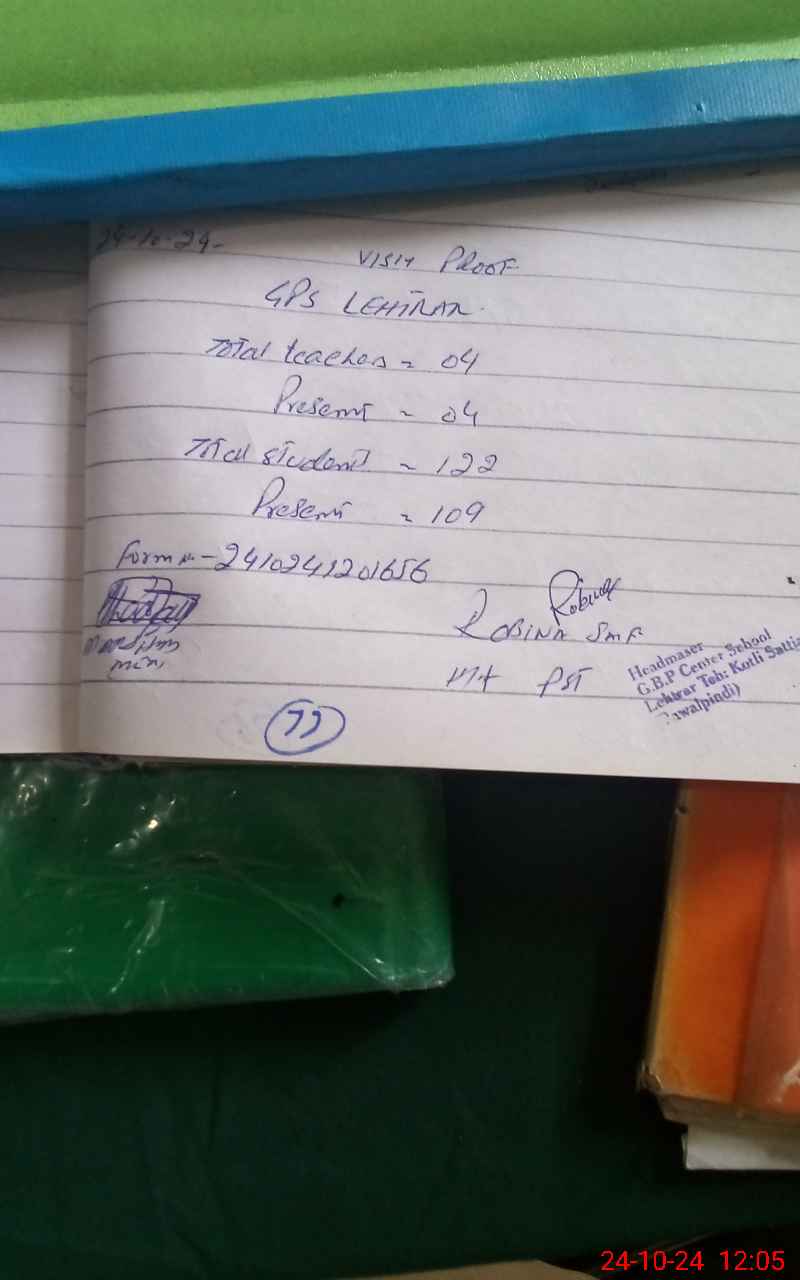 24-10-24-
VISIT PROOF
GPS LEHTRAR.
Total teachers = 04
Present = 04
Total student = 122
Present = 109
Form No - 2410241201656
Robina
ROBINA
PST
Headmaser
G.B.P Center School
Lehtrar Teh: Kotli Sattia
Rawalpindi)
77
24-10-24 12:05